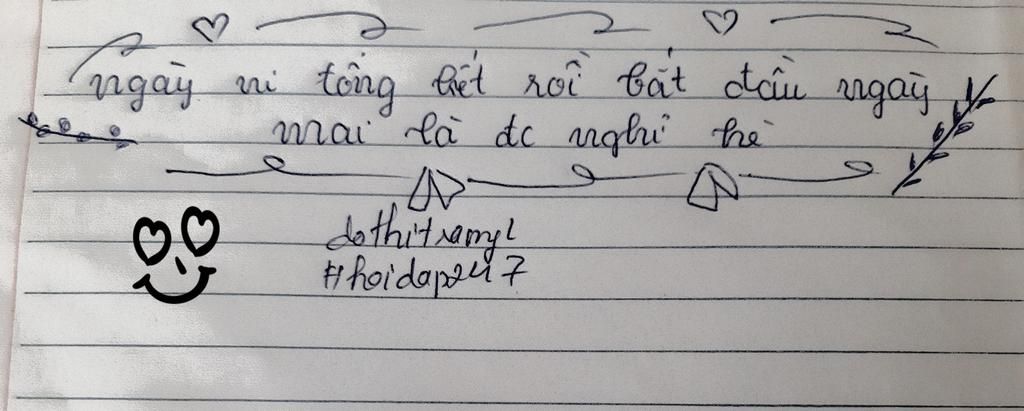 ngày ni tổng kết rồi bắt đầu ngày
mai là đc nghỉ hè
dothitramy1
#hoidap247